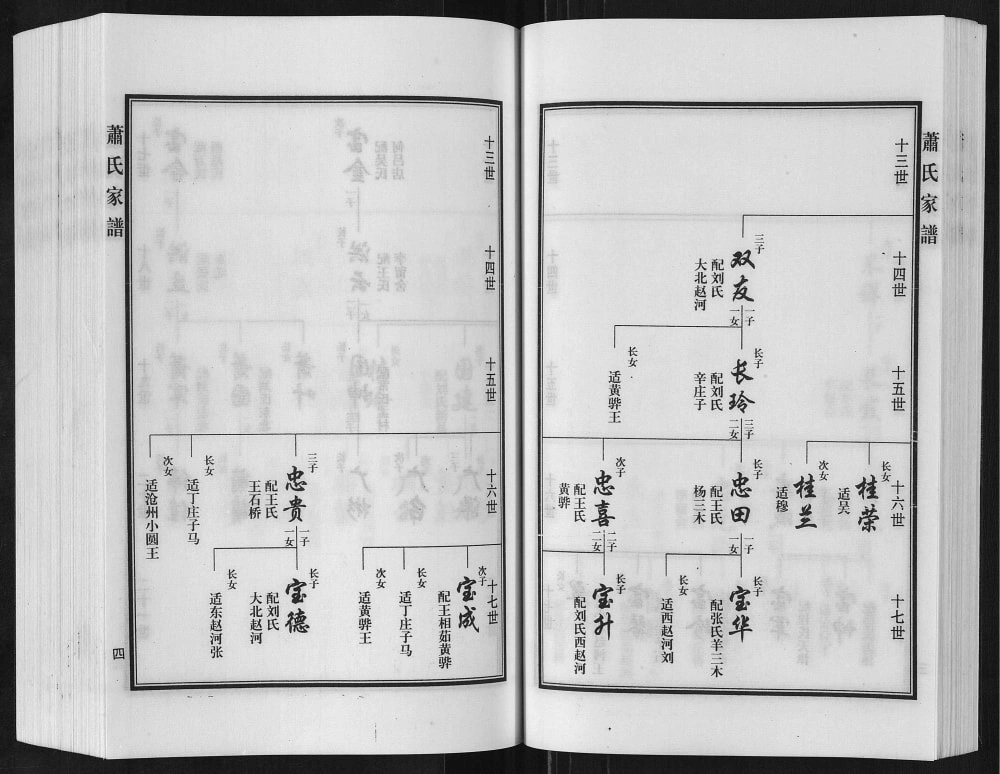 蕭氏家譜
十三世
十四世
三子
双友
配刘氏
大北赵河
一子
一女
十五世
长子
长玲
配刘氏
辛庄子
三子
二女
长女
适黄骅王
十六世
长女
桂荣
适吴
次女
桂兰
适穆
长子
忠田
配王氏
杨三木
一子
一女
次子
忠喜
配王氏
黄骅
二子
二女
十七世
长子
宝华
配张氏羊三木
长女
适西赵河刘
长子
宝升
配刘氏西赵河
十三世
十四世
十五世
十六世
三子
忠贵
配王氏
王石桥
一子
一女
长女
适丁庄子马
次女
适沧州小圆王
十七世
次子
宝成
配王相茹黄骅
长女
适丁庄子马
次女
适黄骅王
长子
宝德
配刘氏
大北赵河
长女
适东赵河张
蕭氏家譜
四